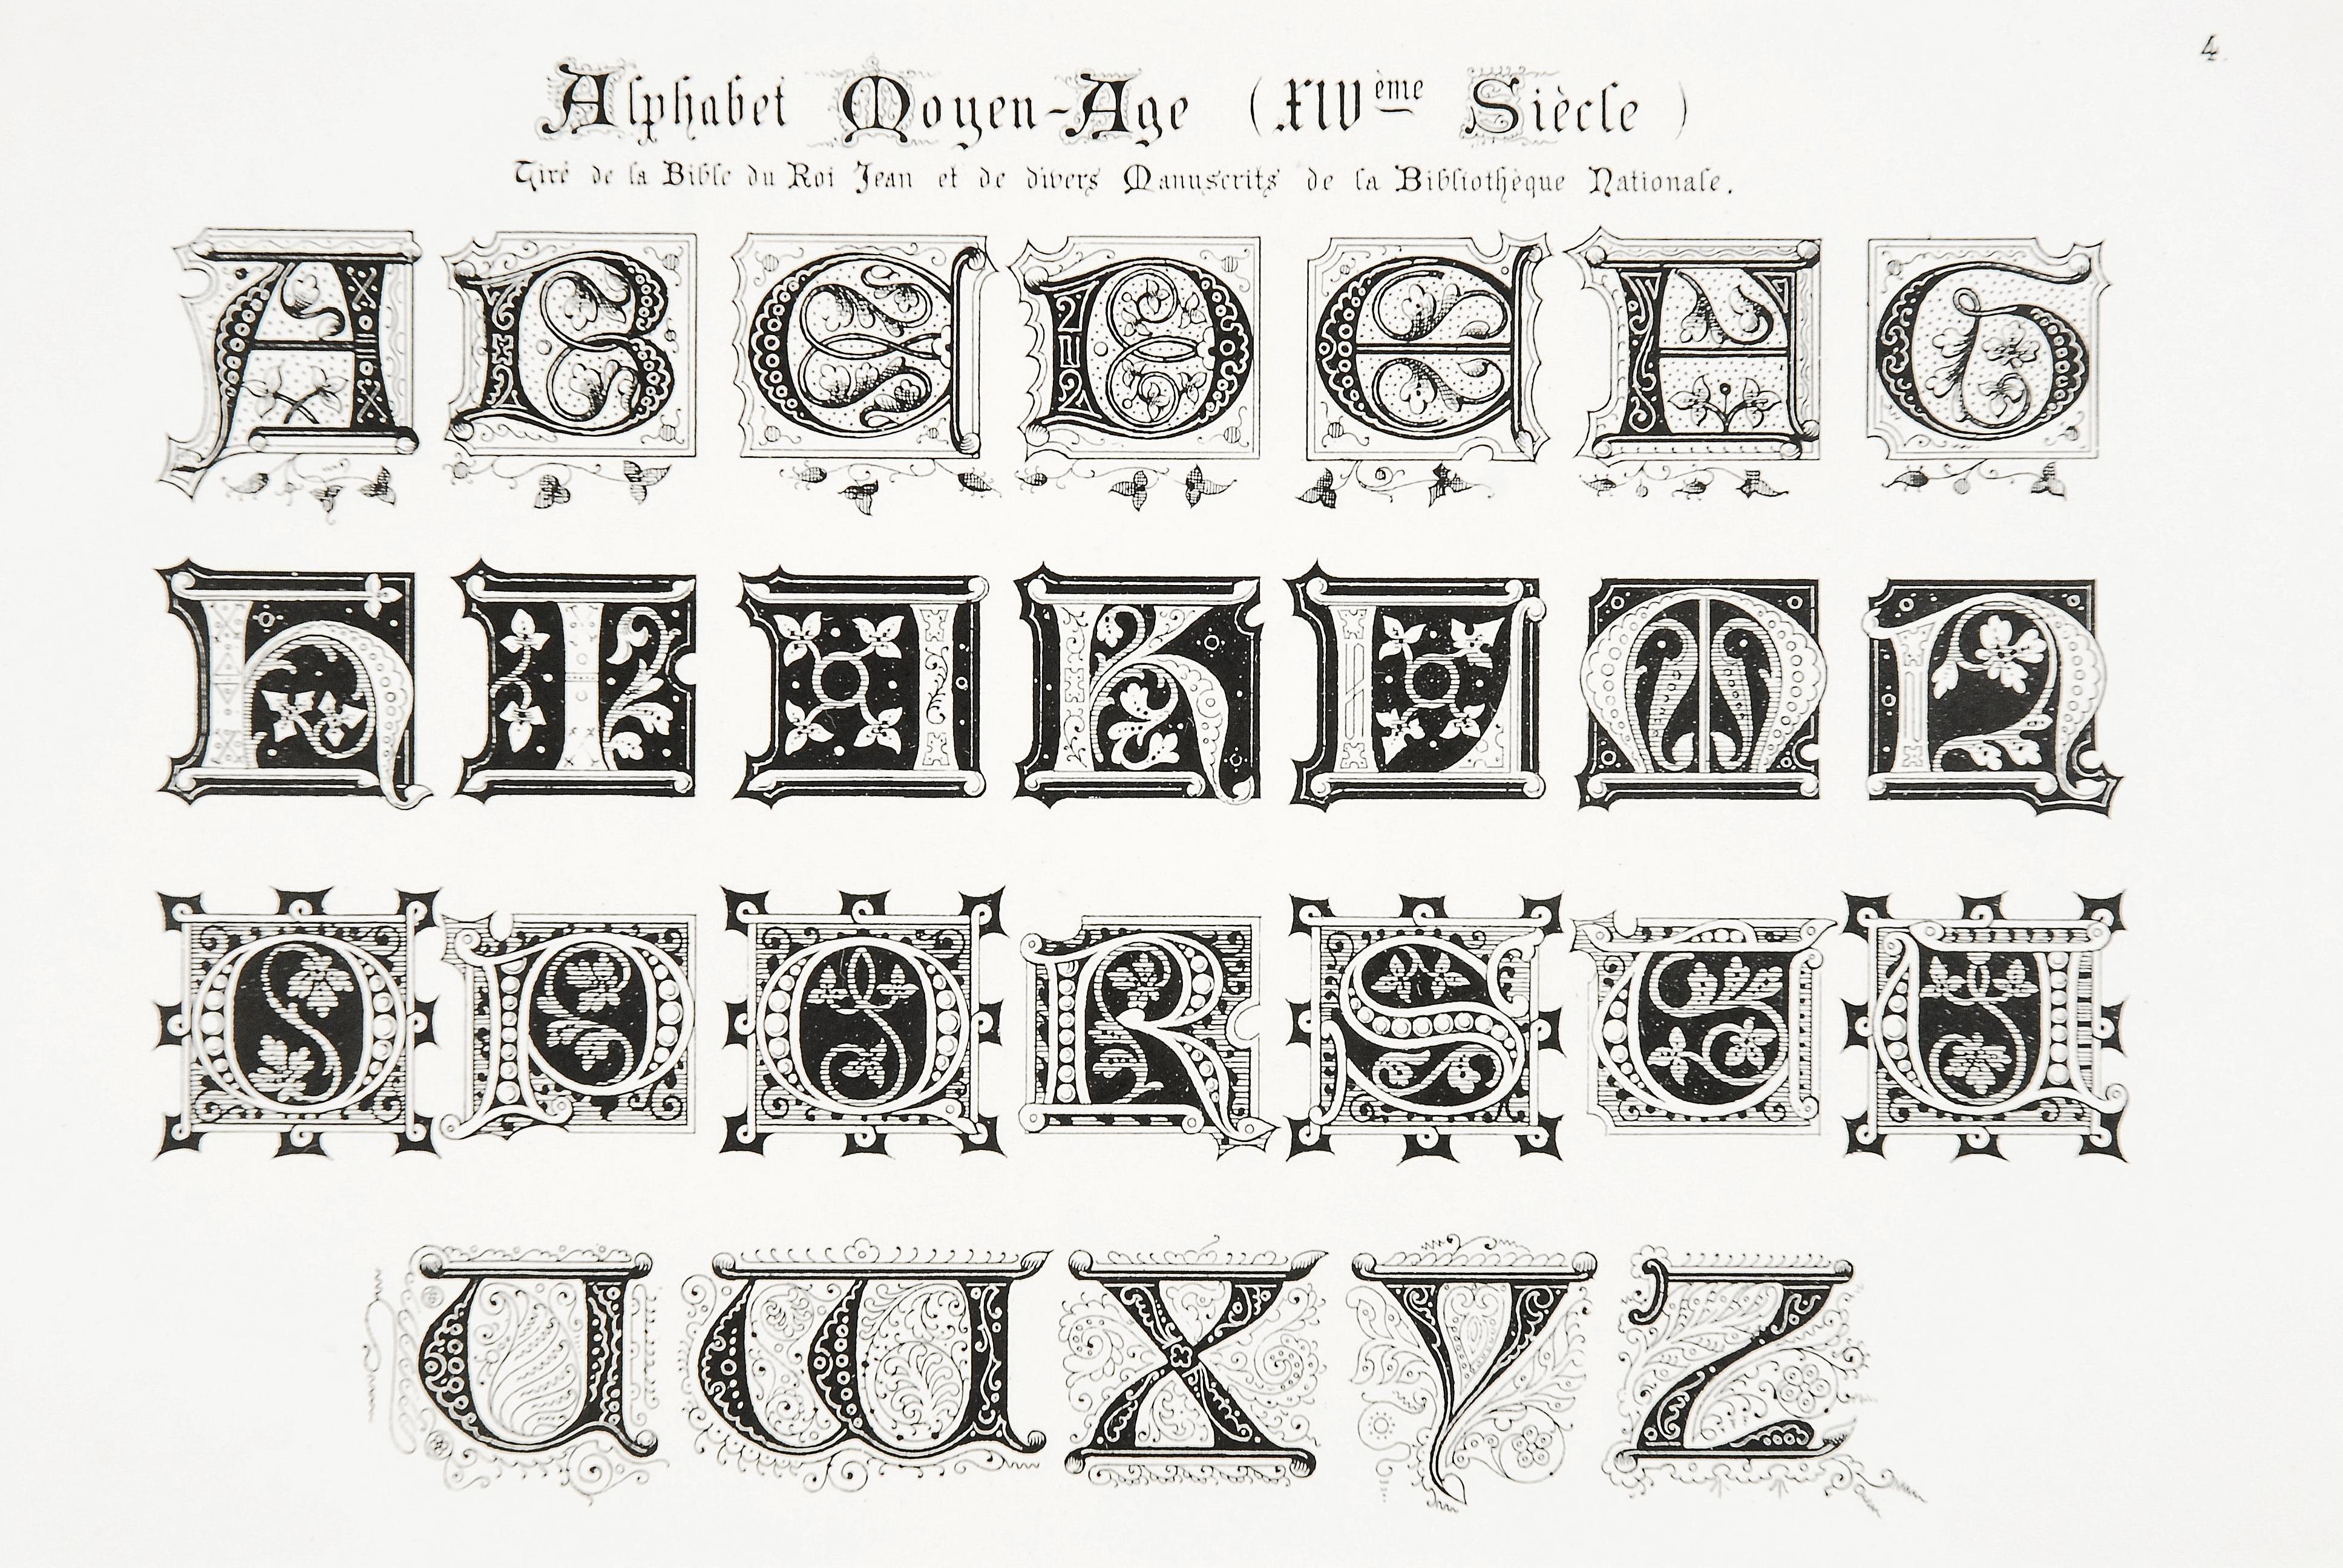 4.
Alphabet Moyen-Age (XIVème Siècle)
Tiré de la Bible du Roi Jean et de divers Manuscrits de la Bibliothèque Nationale.
A B C D E F G
H I J K L M N
O P Q R S T U
V W X Y Z